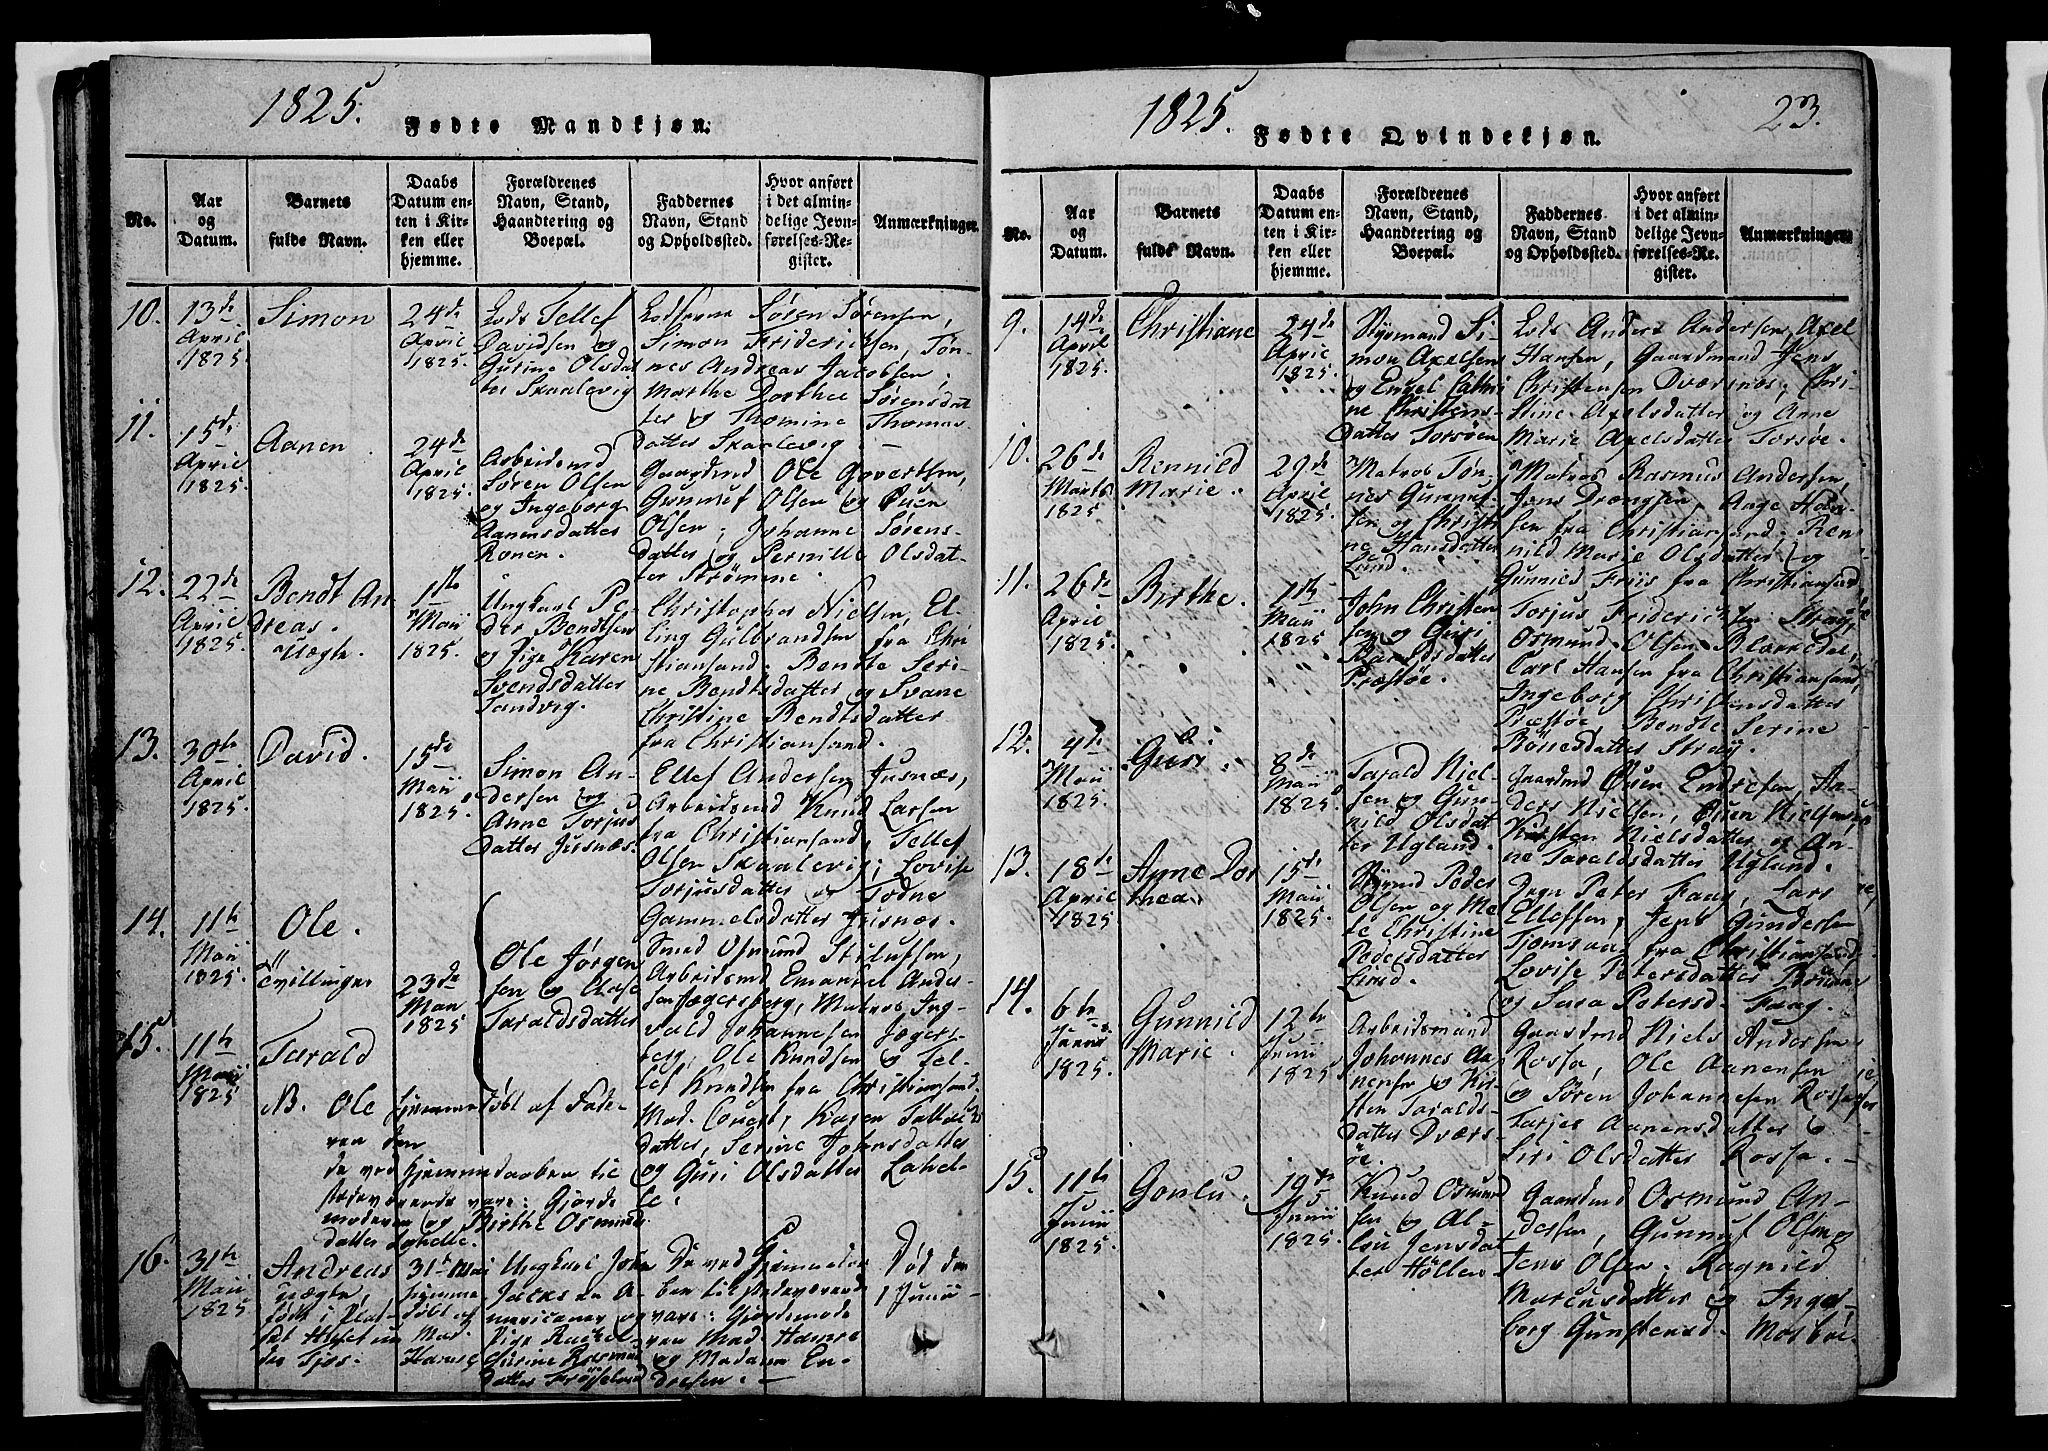 1825.
Fødte Mandkjøn.
No.
Aar
og
Datum.
Barnets
fulde Navn.
Daabs
Datum en-
ten i Kir-
ken eller
hjemme.
Forældrenes
Navn, Stand,
Haandtering og
Boepæl.
Faddernes
Navn, Stand
og Opholdssted.
Hvor anført
i det almin-
delige Jevn-
førelses-Re-
gister.
Anmærkninger.
10.
13de
April
1825.
Simon
24de
April
1825.
Lods Tellef
Davidsen og
Gurine Olsdat-
ter Skaalevig
Lodserne Søren Sørensen,
Simon Friderichsen, Tøn-
nes Andreas Jacobsen.
Marthe Dorthee Sørensdat
ter og Thomine Thomas
datter Skaalevig.
11.
15de
April
1825.
Aanen.
24de
April
1825.
Arbeidsmd
Søren Olsen
og Ingeborg
Aanensdatter
Ronen.
Gaardmd Ole Govertsen,
Gunnuf Olsen og Ouen
Olsen; Johanne Sørens-
datter og Pernille Olsdat-
ter Strømme.
12.
22de
April
1825.
Bendt An
dreas.
Uægte.
1ste
Maii
1825.
Ungkarl Pe-
der Bendtsen
og Pige Karen
Svendsdatter
Sandvig.
Christopher Nielsen, El-
ling Gulbrandsen fra Chri
stiansand. Bendte Seri-
ne Bendtsdatter og Svane
Christine Bendtsdatter
fra Christiansand.
13.
30te
April
1825.
David.
15de
Maii
1825.
Simon An-
dersen og
Anne Torjus
datter Jusnæs.
Ellef Andersen Jusnæs,
Arbeidsmd Knud Larsen
fra Christiansand, Tellef
Olsen Skaalevig; Lovise
Torjusdatter og Todne
Gammelsdatter Jusnæs.
14.
11te
Maii
1825.
Ole.
Tvillinger
23de
Maii
1825
Ole Jørgen
sen og Aase
Taraldsdatter
Smed Osmund Stilufsen,
Arbeidsmd Emanuel Ander-
sen Jægersberg, Matros Ing-
vald Johannesen Jægers-
berg, Ole Knudsen og Tel-
lef Knudsen fra Christiansand.
Mad. Couert, Karen Tellefs
datter, Serine Johnsdatter
og Guri Olsdatter Lahel-
le.
15.
11te
Maii
1825
Tarald
NB. Ole hjemmedøbt af Fade-
ren
de ved hjemmedaaben til
stedeværende vare: Gjorde
moderen og Birthe Osmunds
datter Lahelle.
16.
31te
Maii
1825
Andreas
Uægte,
født i Plad-
set
der Tjos.
31te Mai
hjemme
døbt af
Mad.
Hansø
Ungkarl John
Jacksen A-
mericaner og
Pige Rachel
Surine Rasmus
datter Frøysland
De ved Hjemmedaa-
ben tilstedeværende
vare: Gjordemode
ren Mad. Hansø
og Madam En-
dresen.
Død den
1 Junii
1825.
23.
Fødte Qvindekjøn.
No.
Aar
og
Datum.
Barnets
fulde Navn.
Daabs
Datum en-
ten i Kir-
ken eller
hjemme.
Forældrenes
Navn, Stand,
Haandtering og
Boepæl.
Faddernes
Navn, Stand
og Opholdssted.
Hvor anført
i det almin-
delige Jevn-
førelses-Re-
gister.
Anmærkninger.
9.
14de
April
1825.
Christiane
24de
April
1825.
Styrmand Si-
mon Axelsen
og Engel Cathri
ne Christens-
datter Torsøen
Lods Anders Andersen, Axel
Hansen, Gaardmand Jens
Christensen Dværsnæs; Chri-
stine Axelsdatter og Anne
Marie Axelsdatter Torsøe.
10.
26de
Marts
1825.
Rennild
Marie.
29de
April
1825.
Matros Tøn-
nes Gunnuf-
sen og Christi
ne Hansdatter
Lund.
Matros Rasmus Andersen,
Jens Drengsen, Aage Han-
sen fra Christiansand. Ren-
nild Marie Olsdatter og
Gunnild Friis fra Christiansand
11.
26de
April
1825.
Birthe.
1ste
Maii
1825
John Christen
sen og Guri
Baroldsdatter
Præstøe.
Torjus Friderichsen Straÿ,
Osmund Olsen Blækkedal,
Carl Hansen fra Christiansand,
Ingeborg Christensdatter
Præstøe Bendte Serine
Rønesdatter Straÿ.
12.
4de
Maii
1825.
Guri.
8de
Maii
1825.
Tarald Niel-
sen og Gun-
nild Olsdat
ter Ugland.
Gaardmd Ouen Endresen, An-
ders Nielsen, Ouen Nielsen;
Kirsten Nielsdatter og An-
ne Taraldsdatter Ugland.
13.
18de
April
1825.
Anne Dor
thea.
15de
Maii
1825.
Styrmd Peder
Olsen og Me
te Christine
Pedersdatter
Lund.
Peter Faag, Lars
Ellefsen, Jens Gundersen
Tjomsaas fra Christiansand,
Lovise Petersdatter
og Sara Petersd. Faag.
14.
6te
Junii
1825.
Gunnild
Marie.
12te
Junii
1825
Arbeidsmand
Johannes Aa-
nensen og Kir-
sten Taralds-
datter Dværs-
øe.
Gaardmd Niels Andersen
Rossø, Ole Aanensen
og Søren Johannesen Rossø
Tarjer Aanensdatter &
Siri Olsdatter Rossø.
15.
11te
Junii
1825.
Gonlu.
19de
Junii
1825.
Knud Osmund
sen og Al-
lou Jensdat
ter Høllen
Gaardmd Osmund An-
dersen, Gunnuf Olsen og
Jens Olsen. Ragnild
Marcusdatter og Inge-
borg Gunstensd. Mosbøe.